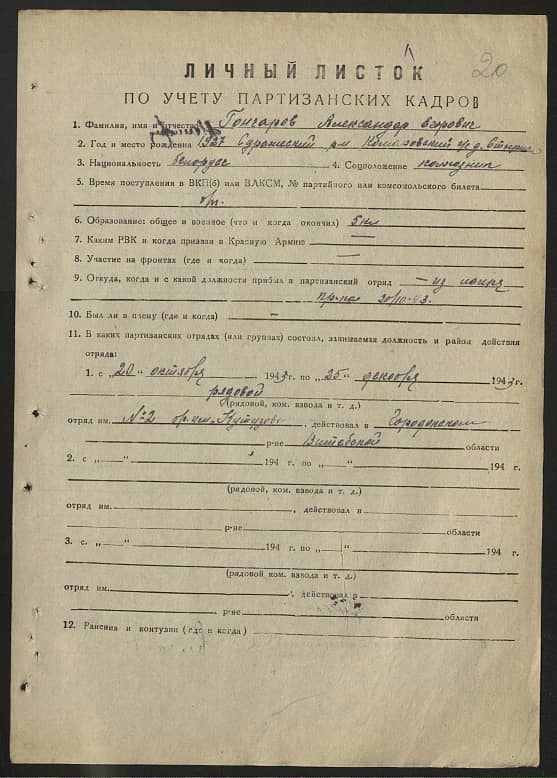 20
ЛИЧНЫЙ ЛИСТОК
ПО УЧЕТУ ПАРТИЗАНСКИХ КАДРОВ
1. Фамилия, имя и отчество Гончаров Александр
2. Год и место рождения 1927
3. Национальность белорусс 4. Соцположение колхозник
5. Время поступления в ВКП(б) или ВЛКСМ, № партийного или комсомольского билета
б/п.
6. Образование: общее и военное (что и когда окончил) 5 кл
7. Каким РВК и когда призван в Красную Армию —
8. Участие на фронтах (где и когда) —
9. Откуда, когда и с какой должности прибыл в партизанский отряд — из
20/10-43.
10. Был ли в плену (где и когда) —
11. В каких партизанских отрядах (или группах) состоял, занимаемая должность и район действия
отряда:
1. с „20" октября 1943 г. по „25" декабря 1943 г.
рядовой
(рядовой, ком. взвода и т. д.)
отряд им. №2 бр. им. Кутузова, действовал в
р-не Витебской области
2. с „ " 194 г. по „ " 194 г.
(рядовой, ком. взвода и т. д.)
отряд им. , действовал в
р-не области
3. с „ " 194 г. по „ " 194 г.
(рядовой, ком. взвода и т. д.)
отряд им. , действовал в
р-не области
12. Ранения и контузии (где и когда)